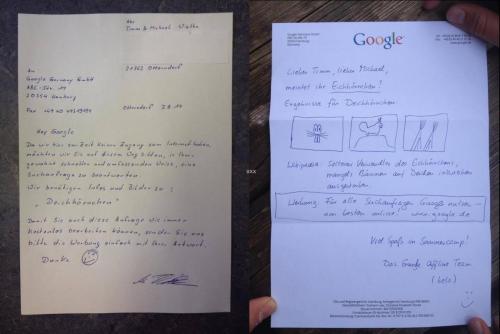 An
Google Germany GmbH
ABC-Str. 19
20354 Hamburg
Fax +49 40 49219194
Abs
Timm & Michael
21762 Otterndorf
Otterndorf
Hey Google
Da wir hier zur Zeit keinen Zugang zum Internet haben,
möchten wir Sie auf diesem Weg bitten, in Ihrer
gewohnt schnellen und umfassenden Weise, eine
Suchanfrage zu beantworten.
Wir benötigen Infos und Bilder zu:
"Deichhörnchen"
Damit Sie auch diese Anfrage wie immer
kostenlos bearbeiten können, senden Sie uns
bitte die Werbung einfach mit Ihrer Antwort.
Danke
xxx
Google
Lieber Timm, lieber Michael,
meintet ihr Eichhörnchen?
Ergebnisse für Deichhörnchen:
Wikipedia: Seltener Verwandter des Eichhörnchens,
mangels Bäumen auf Deichen inzwischen
ausgestorben.
Werbung: Für alle Suchanfragen Google nutzen -
am besten online! www.google.de
Viel Spaß im Sommercamp!
Das Google Offline Team